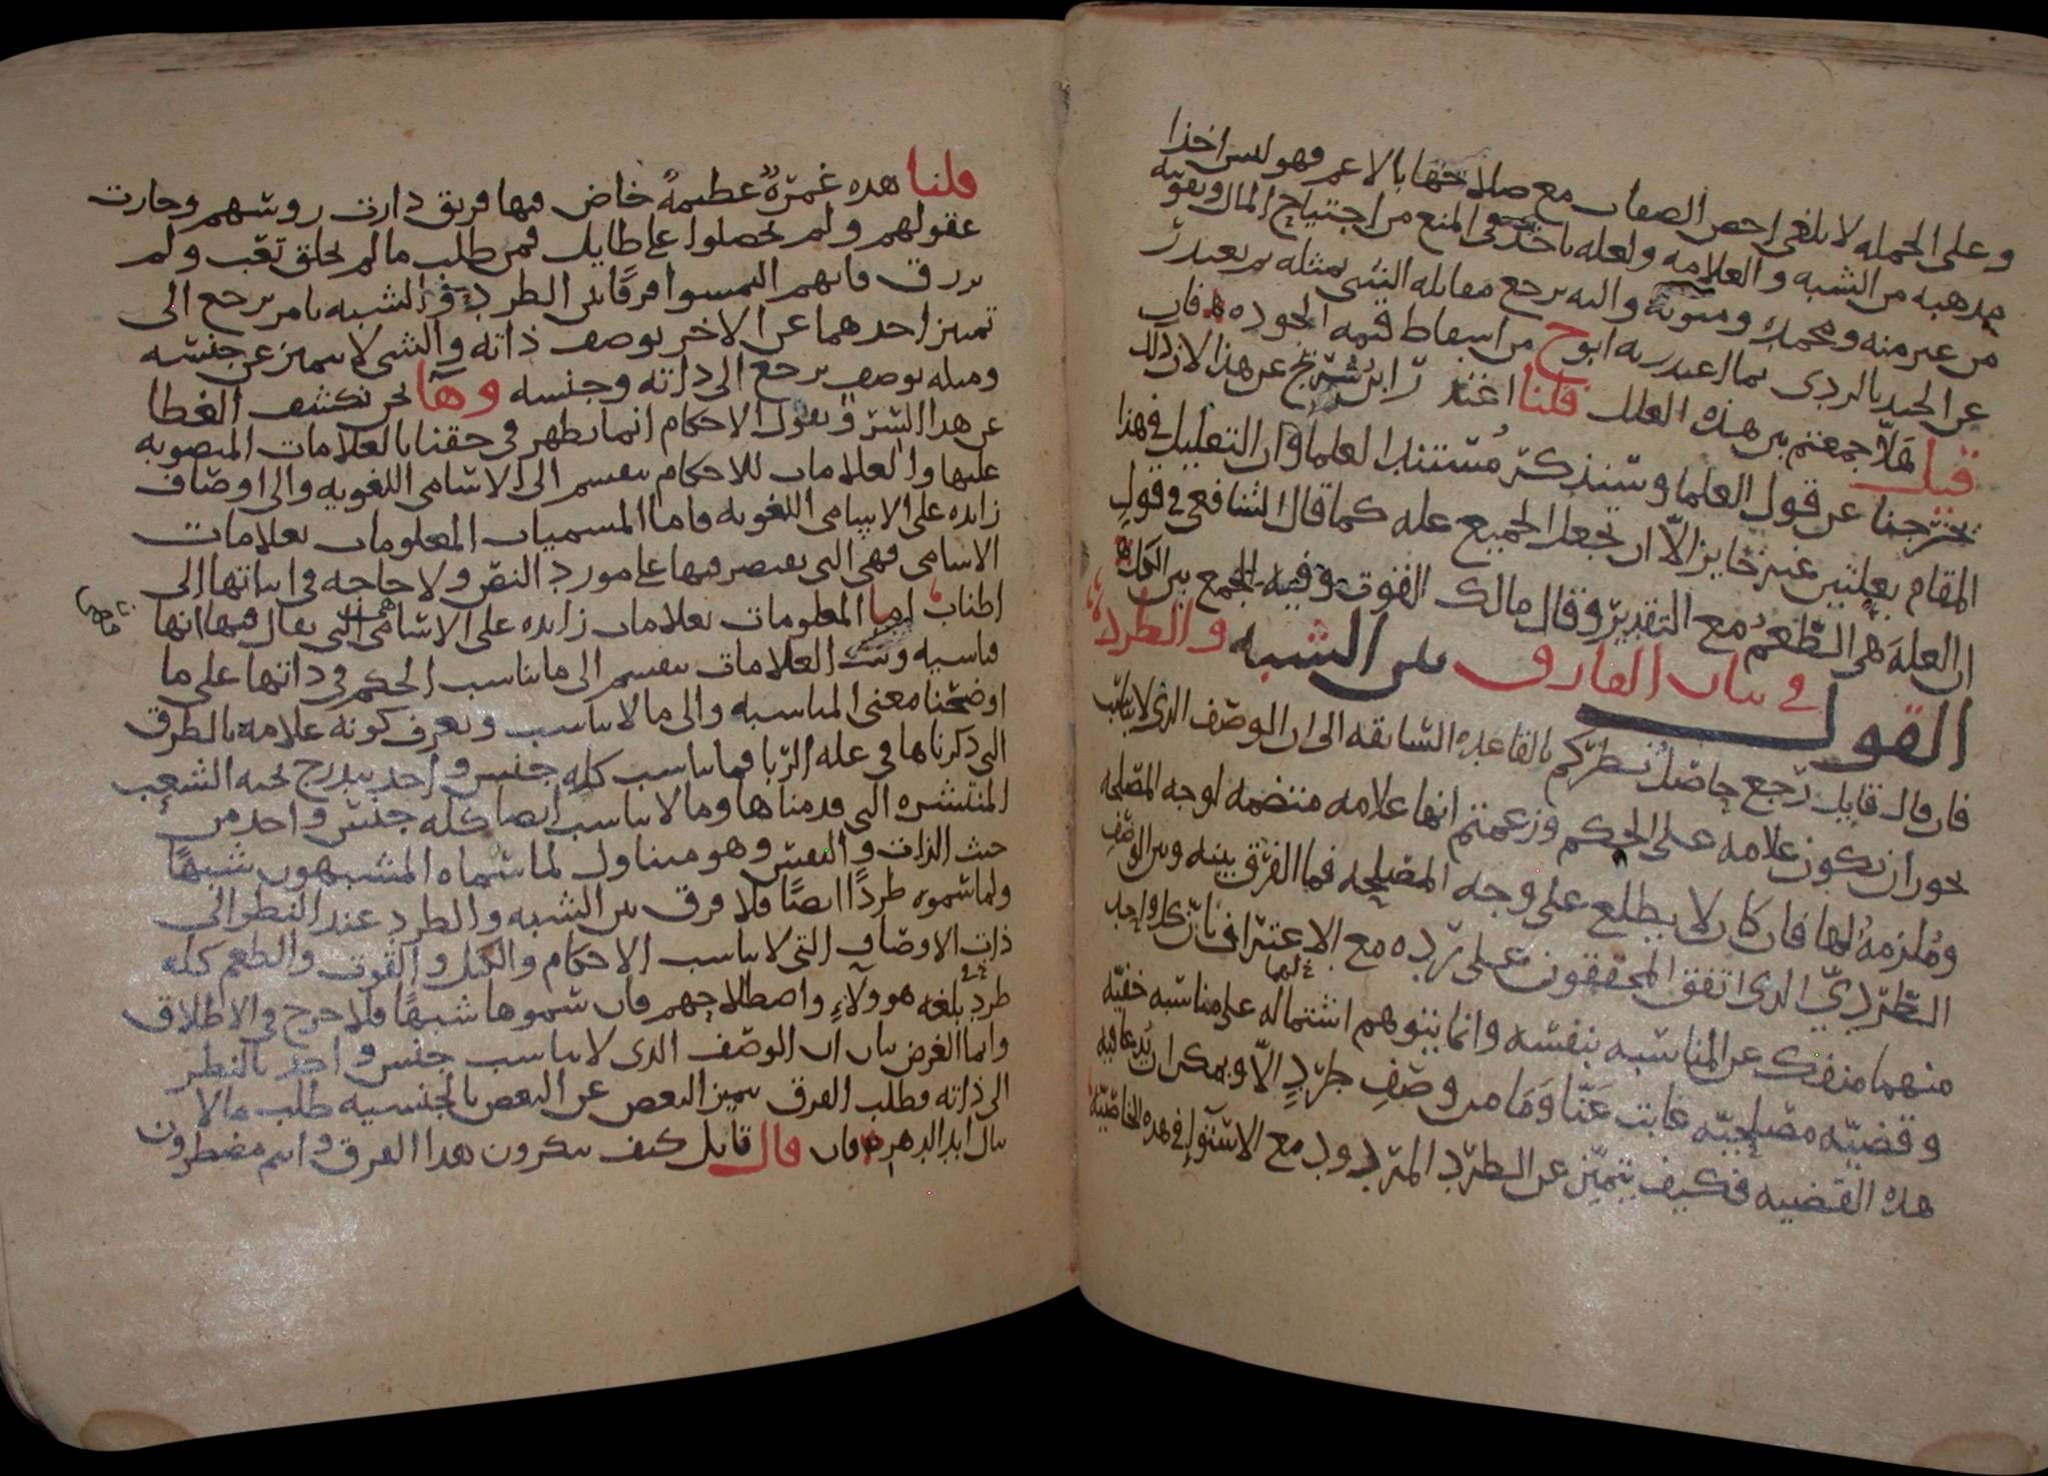 وعلى الجمله لا يلغى اخص الصفات مع صلاحها بالاعم فهو ليس اخذا
من الشبه والعلامه ولعله ياخذ في المنع من اجتياح المال وتقوته
من غير منه ومحمده ومثوبة واليه يرجع مقابله الشي بمثله ثم يعتذر
عن الجيد بالردى بما اعتذر به ابوح من اسقاط قيمه الجوده فان
قيل هلّا جمعتم بين هذه العلل قلنا اعتذر ابن سُريج عن هذا لان ذلك
خرجنا عن قول العلما وسنذكر مُستند العلما وان التعليل في هذا
المقام بعلتين غير جايز الّا ان يجعل الجميع عله كما قال الشافعي في قولٍ
ان العلة هي الطعمُ مع التقدير وقال مالك القوت وفيه الجمع بين الكل
القول في بيان الفارق بين الشبه والطرد
فان قال قايل رجع حاصل نظركم بالقاعده السابقه الى ان الوصف الذى لا يناسب
يجوز ان يكون علامه على الحكم وزعمتم انها علامه متضمنه لوجه المصلحه
ومُلزمةُ لها فان كان لا يطلع على وجه المصلحه فما الفرق بينه وبين الوصفِ
الطرديّ الذى اتفق المحققون على رده مع الاعتراف بان كل واحد
منهما منفك عن المناسبه بنفسه وانما يتوهم اشتماله على مناسبه خفيّه
وقضيّه مصلحيّه غابت عَنّا وَمَا من وصفٍ طردٍ الّا ويمكن ان يُدعا فيه
هذه القضيه فكيف يتميّز عن الطرد المردود مع الاستوا في هذه الخاصّيّه
قلنا هذه غمرَةٌ عظيمةٌ خاض فيها فريق دارت روسهم وحارت
عقولهم ولم يحصلوا على طايل فمن طلب ما لم يخلق تعب ولم
يرزق فانهم التمسوا فرقًا بين الطرد والشبه بامر يرجع الى
تمييز احدهما عن الاخر بوصف ذاته والشى لا يتميز عن جنسه
ومثله بوصفٍ يرجع الى ذاته وجنسه وها نحن نكشف الغطا
عن هذا السّر ونقول الاحكام انما تظهر في حقنا بالعلامات المنصوبه
عليها والعلامات للاحكام تنقسم الى الاسامي اللغويه والى اوصاف
زايده على الاسامي اللغويه فاما المسميات المعلومات بعلامات
الاسامي فهي التى يقتصر فيها على مورد النص ولا حاجه في اثباتها الى
اطناب اما المعلومات بعلامات زايده على الاسامي التي يقال فيها انها
قياسيه وتلك العلامات تنقسم الى ما يناسب الحكم في ذاتها على ما
اوضحنا معنى المناسبه والى ما لا يناسب ويعرف كونه علامه بالطرق
التى ذكرناها في عله الربا فما يناسب كله جنس واحد يندرج تحته الشعب
المنتشره التى قدمناها وما لا يناسب ايضا كله جنس واحد من
حيث الذات والنفس وهو متناول لما سماه المشبهون شبهًا
ولما سموه طردًا ايضًا فلا فرق بين الشبه والطرد عند النظر الى
ذات الاوصاف التي لا يناسب الاحكام والكيل والقوت والطعم كله
طرد بلغه هوولآءِ واصطلاحهم فان سموها شبهًا فلا حرج في الاطلاق
وانما الغرض بيان ان الوصف الذى لا يناسب جنس واحد بالنظر
الى ذاته وطلب الفرق بتميز البعض عن البعض بالجنسيه طلب ما لا
ينال ابد الدهر فان قال قايل كيف تنكرون هذا الفرق وانتم مضطرون